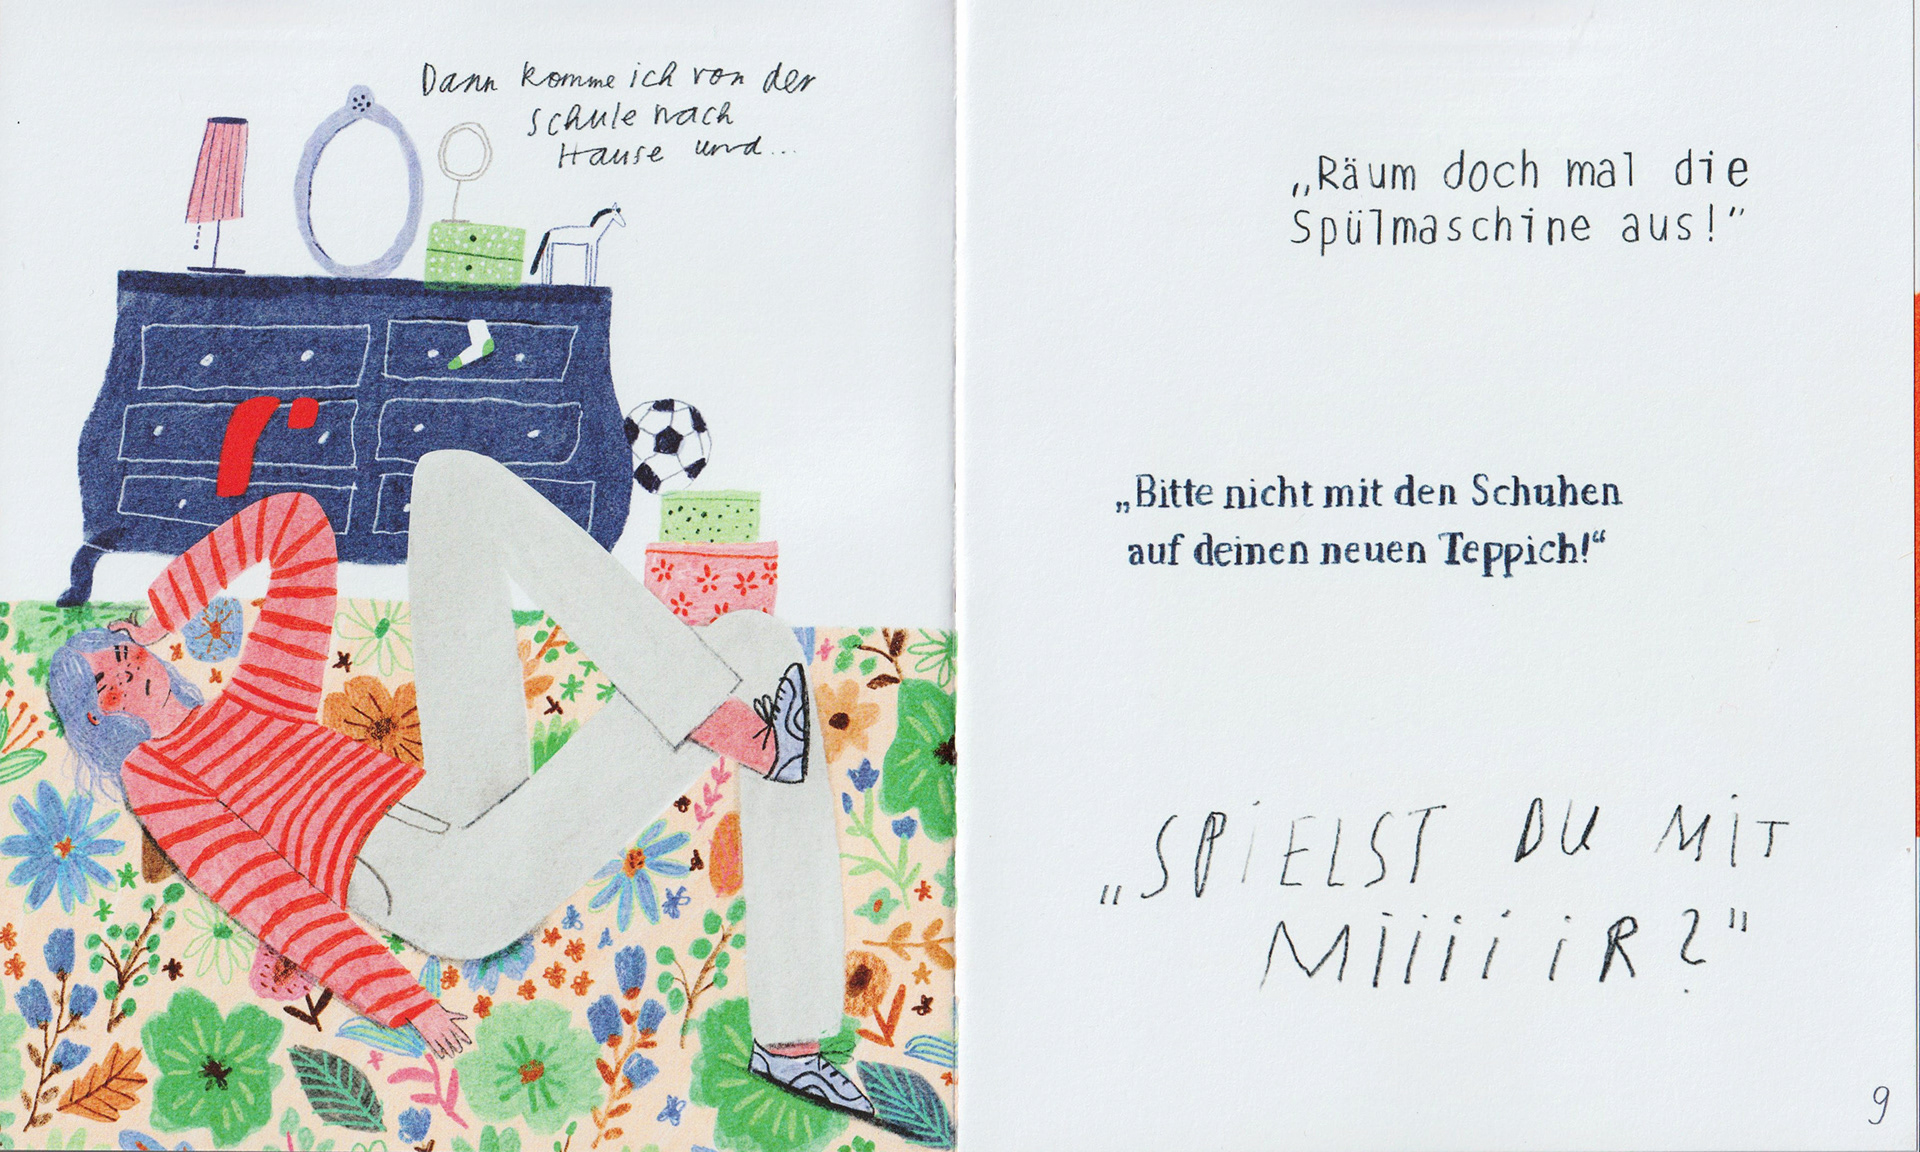 Dann komme ich von der
Schule nach
Hause und...
„Räum doch mal die
Spülmaschine aus!”
„Bitte nicht mit den Schuhen
auf deinen neuen Teppich!“
„SPiELST DU MiT
Miiii iR?”
9